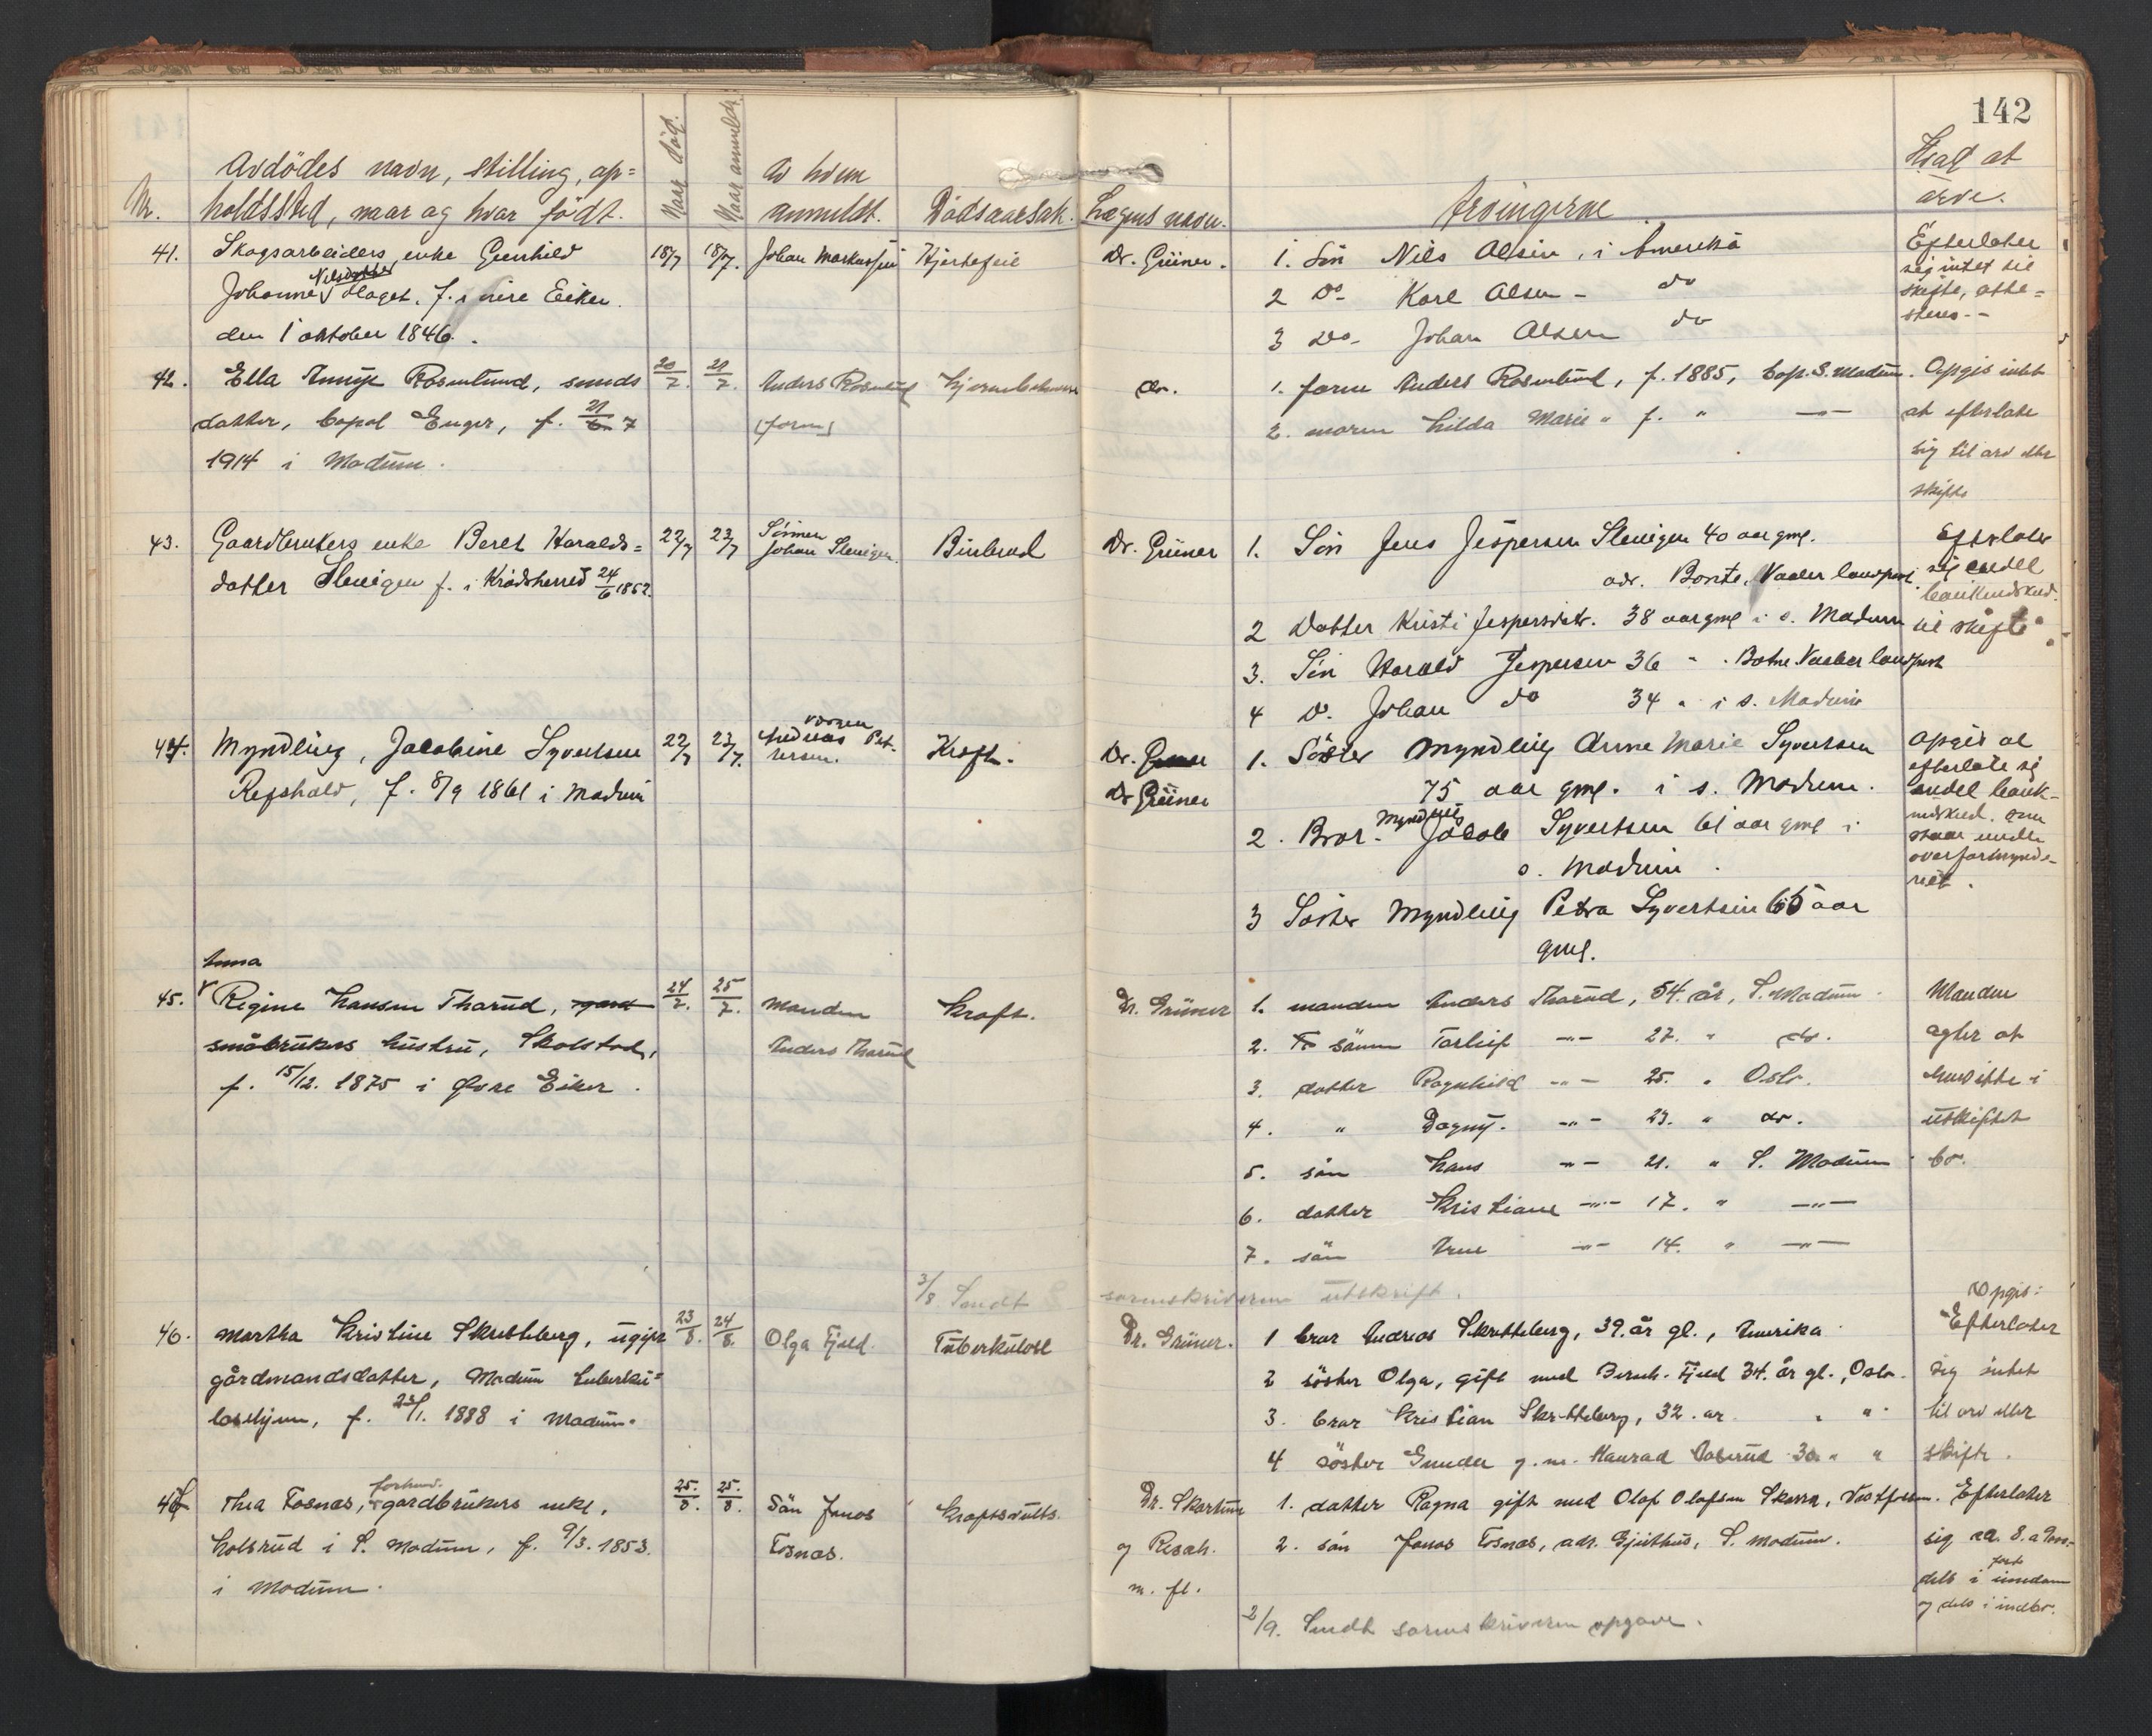 142
Nr.
Avdödes navn, stilling, op=
holdssted, naar og hvor født.
Naar död.
Naar anmeldt.
Av hvem
anmeldt.
Dödsaarsak.
Lægens navn.
Arvingerne
Hvad at
arve.
41. Skogsarbeiders enke Gunhild
Johanne Nilsdatter Hagen, f. i øvre Eiker
den 1 oktober 1846.
18/7 18/7. Johan Markussen Hjertefeil
Dr. Grüner. 1. Sön Nils Olsen, i Amerika
2 Do- Karl Olsen - do
3 Do- Johan Olsen do
Efterlater
sig intet til
skifte, atte=
steres.-
42. Ella Annÿ Rosenlund, smeds
datter, bopæl Enger, f. 21/7
1914 i Modum.
20/7. 21/7. Anders Rosenlund
(faren)
do. 1. faren Anders Rosenlund, f. 1885, bop. S. Modum.
2. moren Hilda Marie " f. " —"—
Opgis intet
at efterlate
sig til arv eller
skifte
43. Gaardbrukers enke Beret Haralds=
datter Slevigen f. i Krødsherred 24/6 1852.
22/7 23/7 Sönnen
Johan Slevigen.
Dr. Grüner 1. Sön Jens Jespersen Slevigen 40 aar gml.
adr. Vaaler landpost.
2 Datter Kristi Jespersdtr. 38 aar gml i s. Modum
3. Sön Harald Jespersen 36 " . Botne Vaaler landpost
4 Do. Johan do 34 " i s. Modum
Efterlater
sig endel
bankindskud
til skifte
44. Myndling, Jacobine Syvertsen
Refshald, f. 8/9 1861 i Modum
22/7 23/7. vørgen
Andreas Pet-
tersen.
Kreft.
Dr. Grüner
1. Söster Myndling Anne Marie Syvertsen
75 aar gml. i s. Modum.
2. Bror. Myndling Jacob Syvertsen 61 aar gml i
s. Modum.
3 Söster Myndling Petra Syvertsen 65 aar
gml.
Opgis at
efterlate sig
endel bank-
indskud. som
staar under
overformynde-
riet.
45. Anna
Regine Hansen Thorud,
småbrukers hustru, Skalstad,
f. 15/12. 1875 i Øvre Eiker.
24/7. 25/7. manden
Anders Thorud
Kræft.
Dr. Grüner 1. manden Anders Thorud, 54. år, S. Modum.
2. sönn Torleif —"— 27. " do.
3. datter Ragnhild —"— 25. " Oslo.
4. " Dagnÿ. —"— 23. " do.
5. sön Hans —"— 21. " S. Modum
6. datter Kristiane —"— 17. " —"—
7. sön Arne —"— 14. " —"—
Manden
agter at
hensitte i
uskiftet
bo.
3/8 Sendt sorenskriveren utskrift.
46. Martha Kristine Skretteberg, ugift
gårdmandsdatter, Modum tuberku=
losehjem, f. 23/1. 1888 i Modum.
23/8. 24/8. Olga Fjeld. Tuberkulose
Dr. Grüner. 1 bror Andreas Skretteberg, 39. år gl., Amerika
2 söster Olga, gift med Bernh. Fjeld 34. år gl., Oslo.
3. bror Kristian Skretteberg, 32. år " "
4 söster Gunda g. m. 30 " "
Opgis:
Efterlater
sig intet
til arv eller
skifte.
47 Thea Fosnæs, forhenv. gardbrukers enke,
Holsrud i S. Modum, f. 9/3. 1853.
i Modum.
25./8. 25./8. Sön Jonas
Fosnæs.
Kræftsvulst.
Dr. Skartum
og Resch.
m. fl.
1. datter Ragna gift med Olaf Olafsen Skarra, Vestfossen.
2. sön Jonas Fosnæs, adr. Gjethus, S. Modum.
Efterlater
sig ca. 8. a
dels i fast eiendom
og dels i indbo.
2/9. Sendt sorenskriveren opgave.